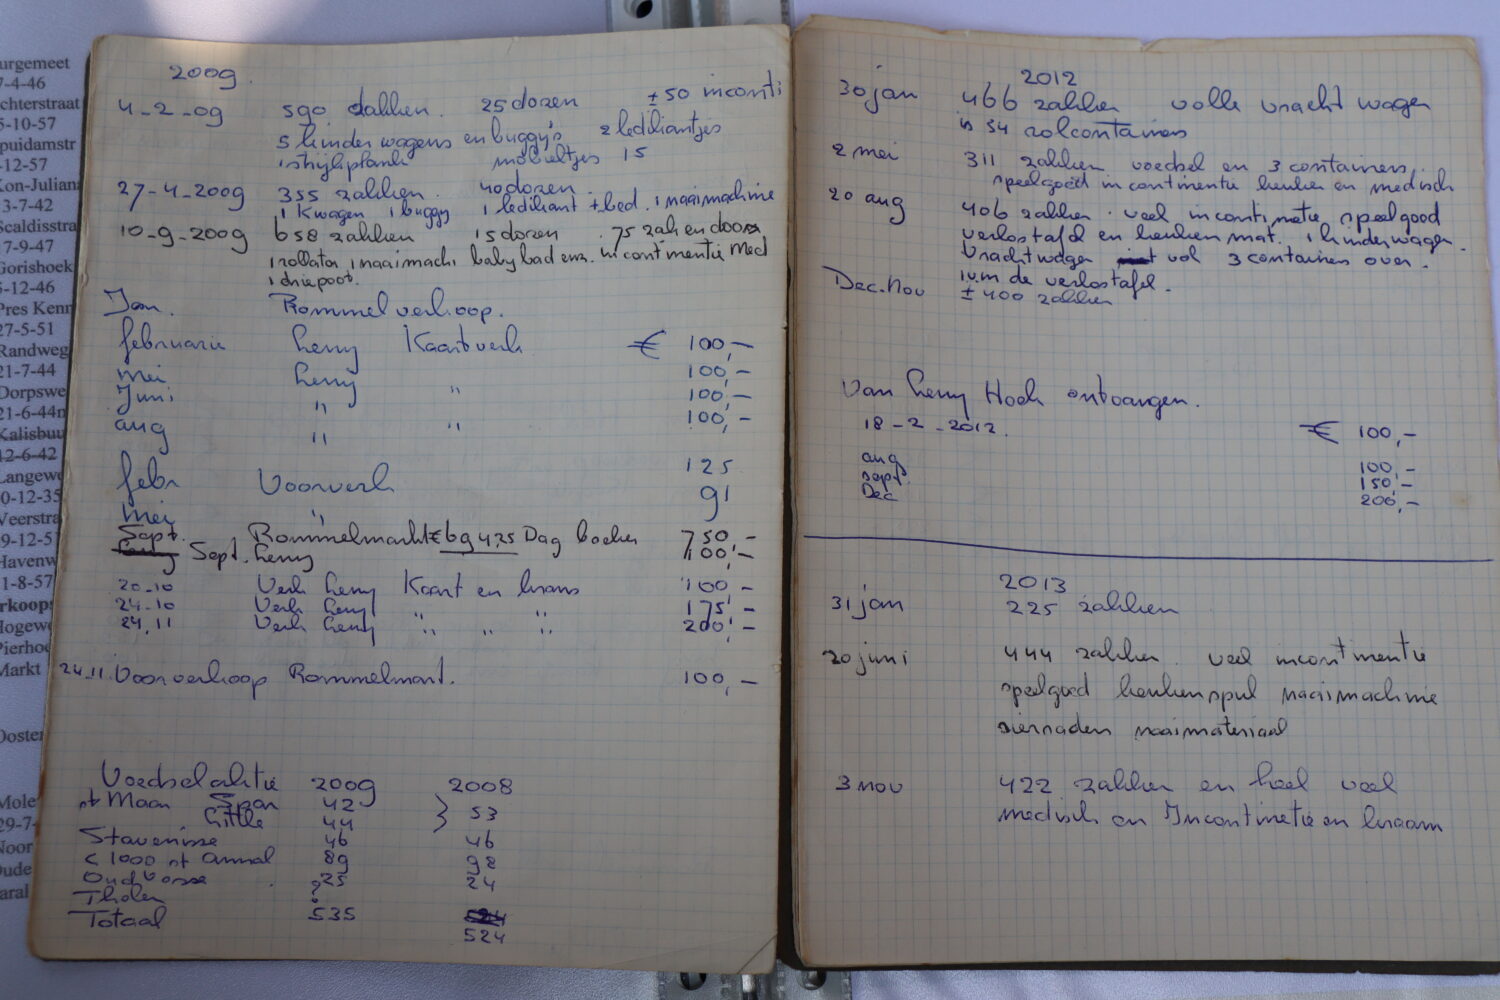 urgemeet
7-4-46
chterstraat
5-10-57
puidamstr
-12-57
Kon-Julian
3-7-42
Scaldisstra
7-9-47
Gorishoek
5-12-46
Pres Kenn
27-5-51
Randweg
21-7-44
Dorpswe
21-6-44
Kalisbuu
12-6-42
Langewe
0-12-35
Veerstra
9-12-5
Havenw
1-8-57
rkoops
Hogewe
Pierhoe
Markt
Ooster
Mole
29-7-
Noor
Oude
aral
2009.
4-2-09 590 zakken. 25 dozen ±50 inconti
5 kinderwagens en buggy's 2 ledikantjes
1 strijkplank 15
27-4-2009 355 zakken. 40 dozen.
1 kwagen 1 buggy 1 ledikant + bed. 1 naaimachine
10-9-2009 658 zakken 15 dozen .75 zak en doos
1 rollator 1 naaimach. babybad enz. incontimentie med
1 driepoot.
Jan. Rommelverkoop.
februarie henny Kaartverk € 100,-
mei henny 100,-
Juni " " 100,-
aug " " 100,-
febr Voorverk 125
mei " 91
Sept. Rommelmarkt € 694,25 Dag boeken 750,-
Sept. henny 100,-
20-10 Verk henny Kaart en krans 100,-
24-10 Verk henny " " " 175,-
24,11 Verk henny " " " 200,-
24.11. Voorverkoop Rommelmart. 100,-
Voedselaktie 2009 2008
st Maar Spar 42 } 53
44
Stavenisse 46 46
< 1000 st Annal 89 98
Oud Vosse 25 24
Tholen ?
Totaal 535 524
524
2012
30 jan 466 zakken volle vracht wagen
in 54 rolcontainers
2 mei 311 zakken voedsel en 3 containers,
speelgoed incontimentie keuken en medisch
20 aug 406 zakken. veel incontimetie, speelgoed
verlostafel en keuken mat. 1 kinderwagen.
Vrachtwagen vol 3 containers over.
i.v.m de verlostafel.
Dec. Nov ± 400 zakken
Van henny Hoek ontvangen.
18-2-2012. € 100,-
aug 100,-
sept. 150,-
Dec 200,-
2013
31 jan 225 zakken
20 juni 444 zakken. veel incontimentie
speelgoed keukenspul naaimachine
siernaden naaimateriaal
3 nov 422 zakken en heel veel
medisch en Incontimetie en kraam